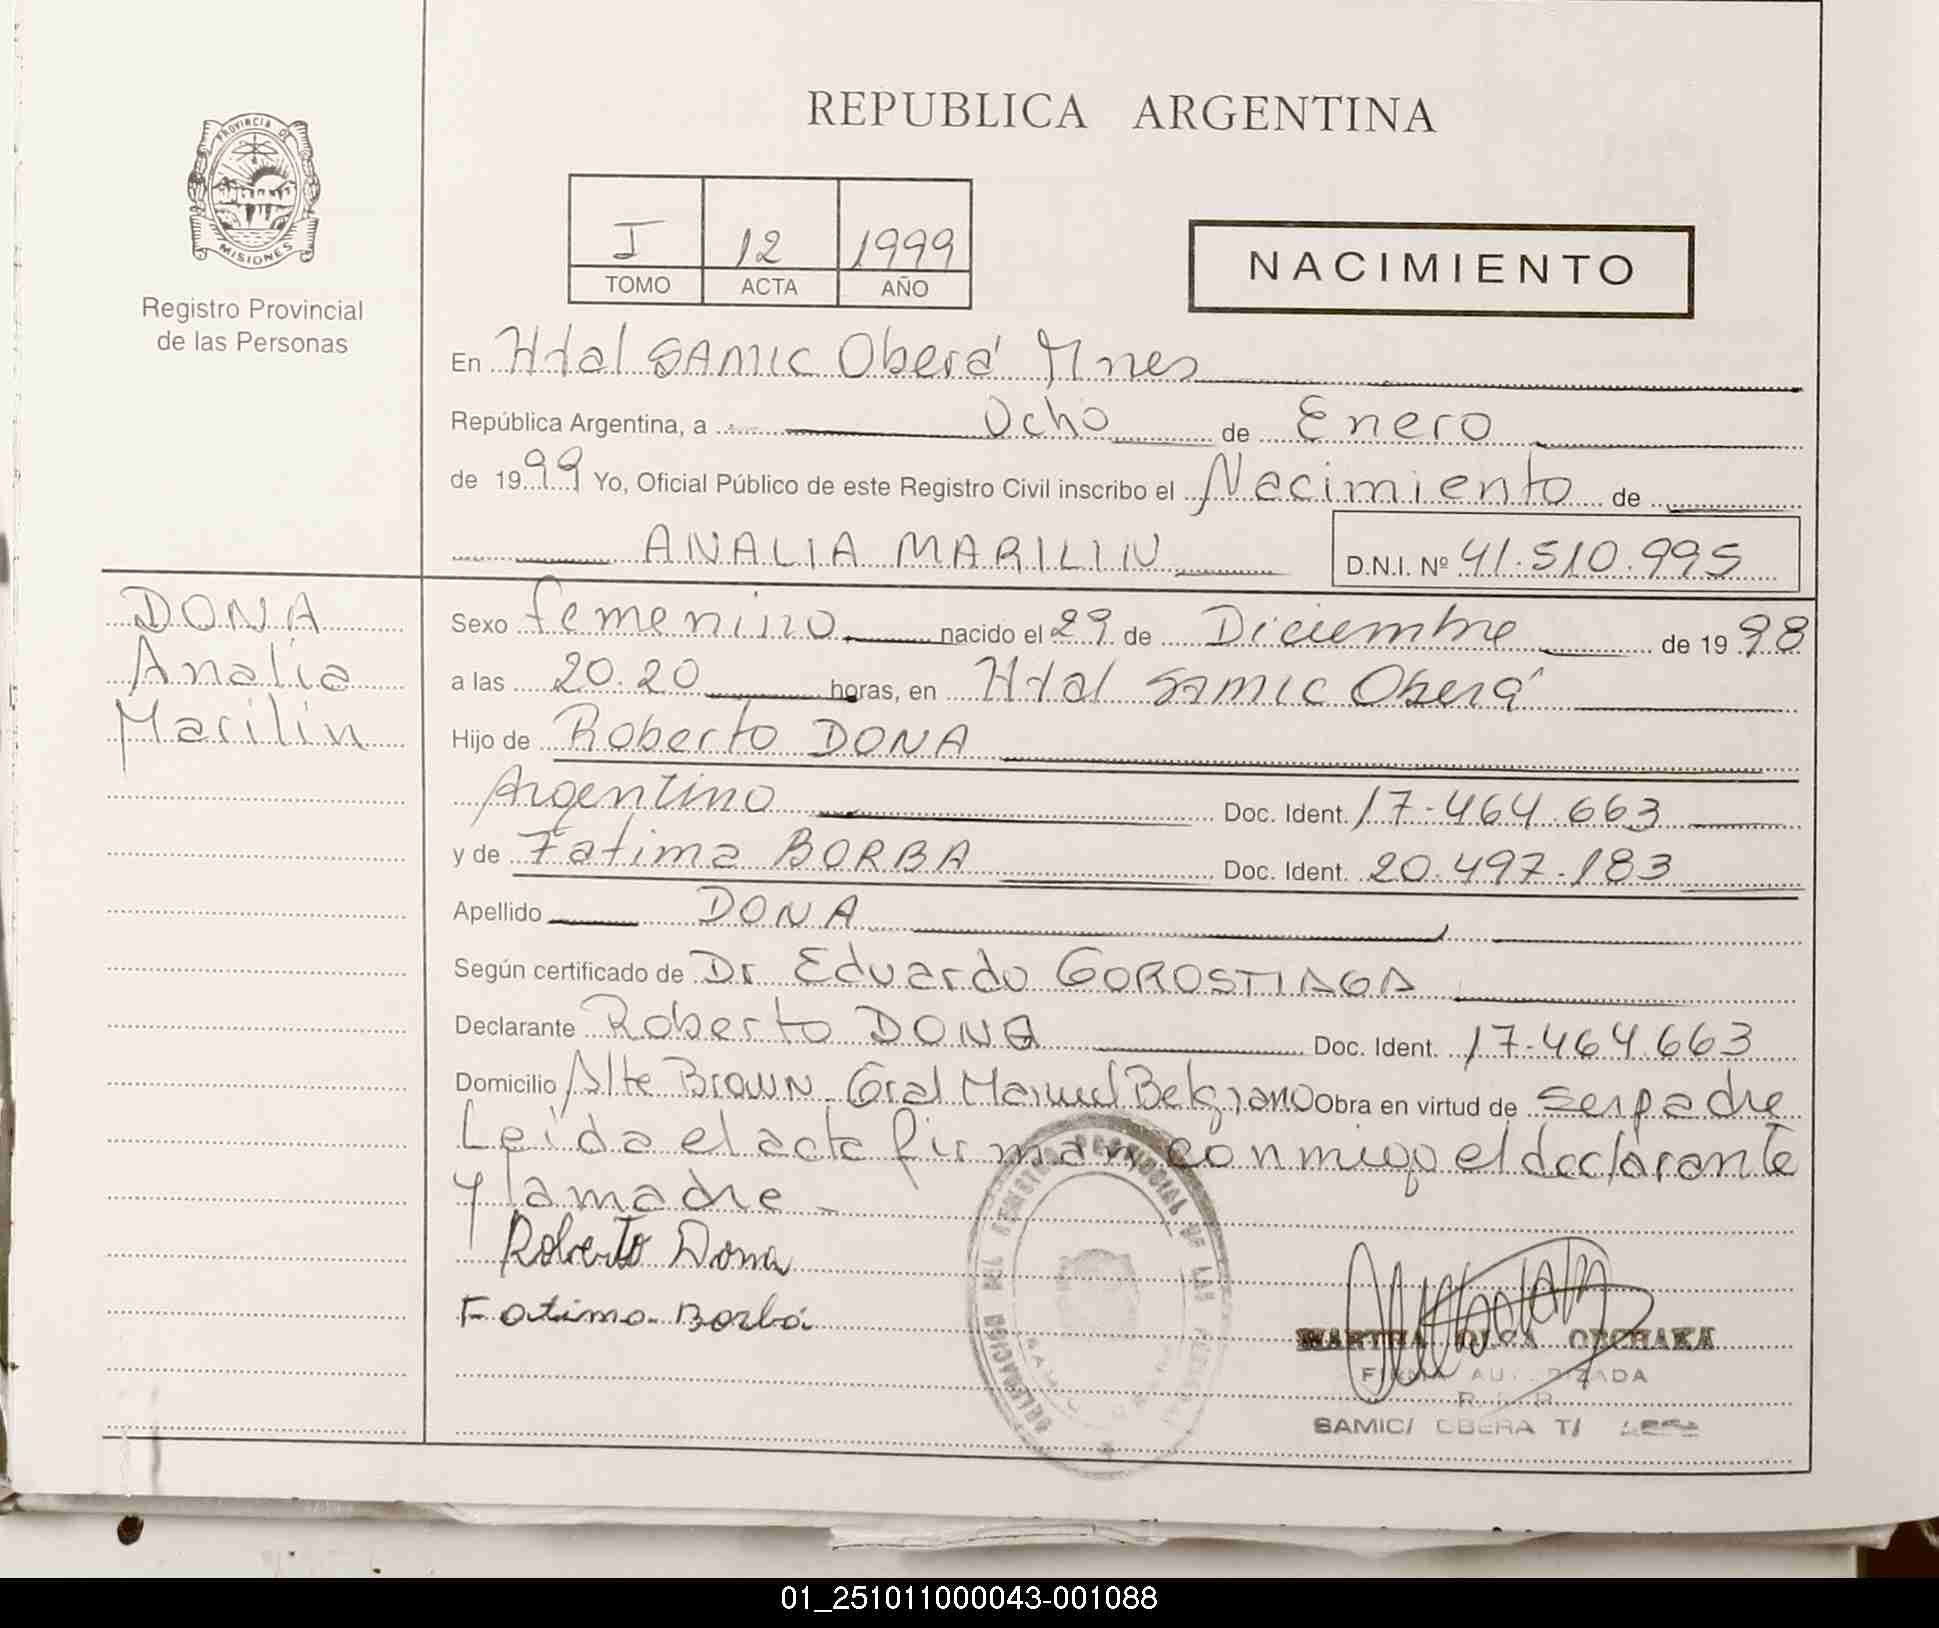 REPUBLICA ARGENTINA
PROVINCIA DE
MISIONES
Registro Provincial
de las Personas
I 12 1999
TOMO ACTA AÑO
NACIMIENTO
En Htal SAMIC Oberá Mnes
República Argentina, a Ocho de Enero
de 1999 Yo, Oficial Público de este Registro Civil inscribo el Nacimiento de
ANALIA MARILIN D.N.I. Nº 41.510.995
DONA
Analia
Marilin
Sexo femenino nacido el 29 de Diciembre de 1998
a las 20.20 horas, en Htal SAMIC Oberá
Hijo de Roberto DONA
Argentino Doc. Ident. 17.464.663
y de Fatima BORBA Doc. Ident. 20.497.183
Apellido DONA
Según certificado de Dr Eduardo GOROSTIAGA
Declarante Roberto DONA Doc. Ident. 17.464.663
Domicilio Alte Brown. Gral Manuel Belgrano Obra en virtud de ser padre
Leida el acta firman conmigo el declarante
y la madre
Roberto Dona
Fatima Borba
DELEGACION DEL REGISTRO PROVINCIAL DE LAS PERSONAS
MARTHA OLGA
FIRMA AUTORIZADA
SAMIC/ OBERA
01_251011000043-001088